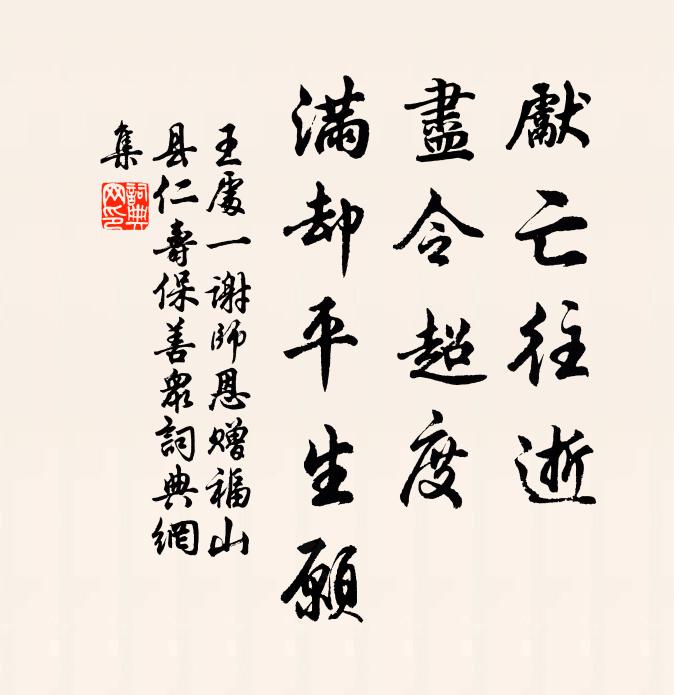 獻亡往逝
盡令超度
滿却平生願
王處一谢師恩赠福山
县仁壽保善眾詞典網
集
詞典
网印